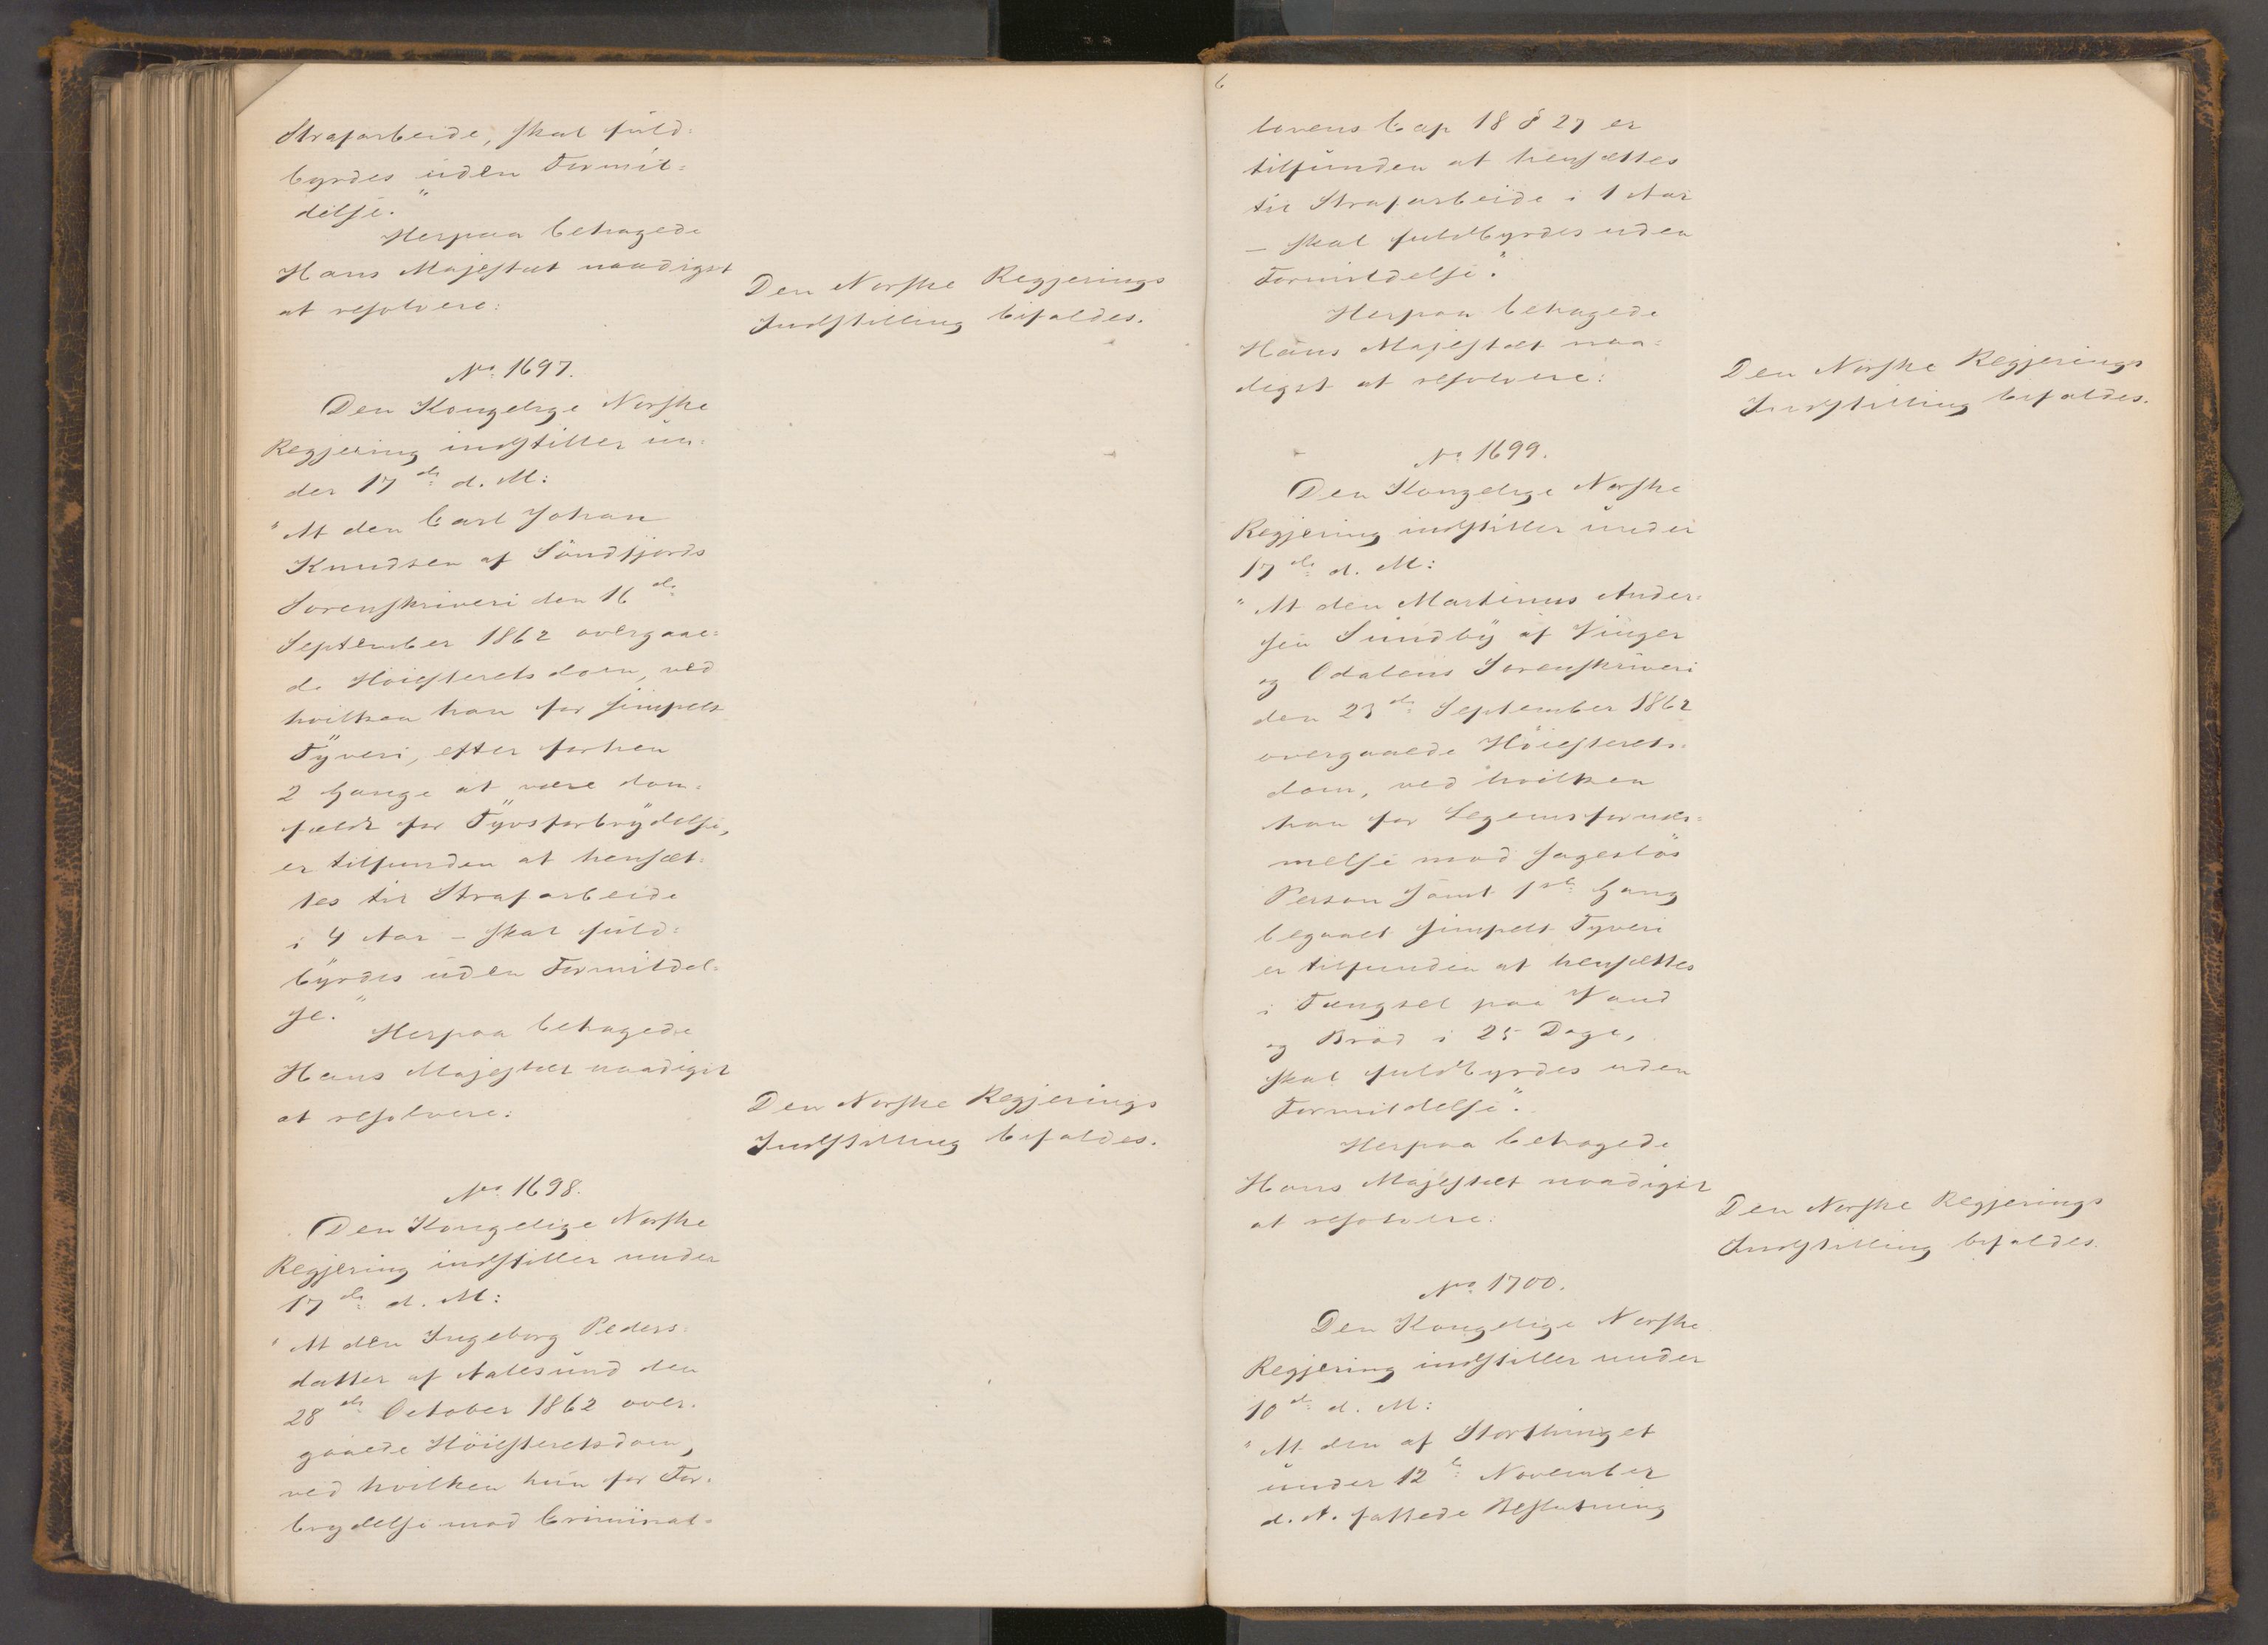 Strafarbeide, skal fuld-
byrdes uden Formil-
delse."
Herpaa behagede
Hans Majestæt naadigst
at resolvere:
Den Norske Regjerings
Indstilling bifaldes.
No. 1697.
Den Kongelige Norske
Regjering indstiller un-
der 17de d. M:
"At den Carl Johan
Knudsen af Söndfjords
Sorenskriveri den 16de
September 1862 overgaae-
de Höiesteretsdom, ved
hvilken han for simpelt
Tyveri, efter forhen
2 Gange at være dom-
fældt for Tyvsforbrydelse,
er tilfunden at hensæt-
tes til Strafarbeide
i 4 Aar - skal fuld-
byrdes uden Formildel-
se."
Herpaa behagede
Hans Majestæt naadigst
at resolvere:
Den Norske Regjerings
Indstilling bifaldes.
No. 1698.
Den Kongelige Norske
Regjering indstiller under
17de d. M:
"At den Ingeborg Peders-
datter af Aalesund den
28de October 1862 over-
gaaede Höiesteretsdom,
ved hvilken hun for For-
brydelse mod Criminal-
6
lovens Cap 18 § 27 er
tilfunden at hensættes
til Strafarbeide i 1 Aar
- skal fuldbyrdes uden
Formildelse."
Herpaa behagede
Hans Majestæt naa-
digst at resolvere:
Den Norske Regjerings
Indstilling bifaldes.
No. 1699.
Den Kongelige Norske
Regjering indstiller under
17de d. M:
"At den Martinus Ander-
sen Sundby af Vinger
og Odalens Sorenskriveri
den 23de September 1862
overgaaede Höiesterets-
dom, ved hvilken
han for Legemsfornær-
melse mod sageslös
Person samt 1ste Gang
begaaet simpelt Tyveri
er tilfunden at hensættes
i Fængsel paa Vand
og Bröd i 25 Dage,
skal fuldbyrdes uden
Formildelse."
Herpaa behagede
Hans Majestæt naadigst
at resolvere:
Den Norske Regjerings
Indstilling bifaldes.
No. 1700.
Den Kongelige Norske
Regjering indstiller under
10de d. M:
"At den af Storthinget
under 12te November
d. A. fattede Beslutning